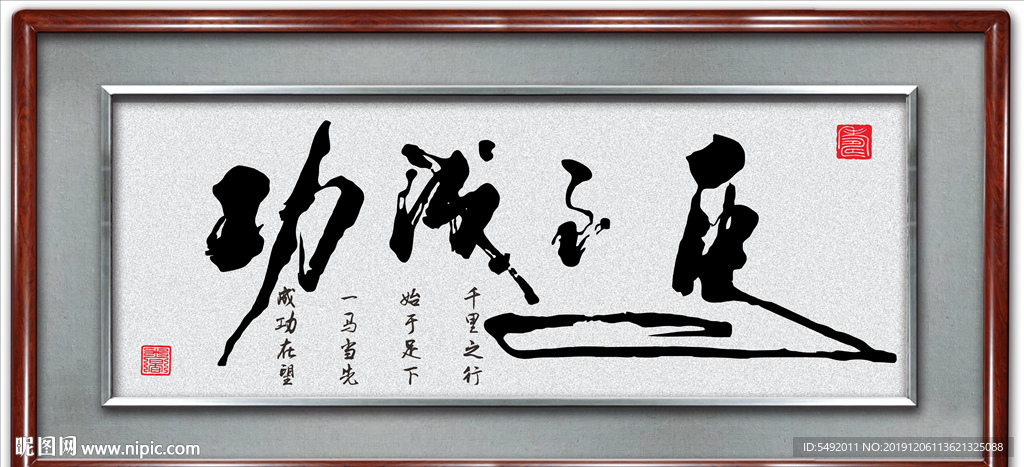 马到成功
千里之行
始于足下
一马当先
成功在望
昵图网 www.nipic.com
ID:5492011 NO:20191206113621325088